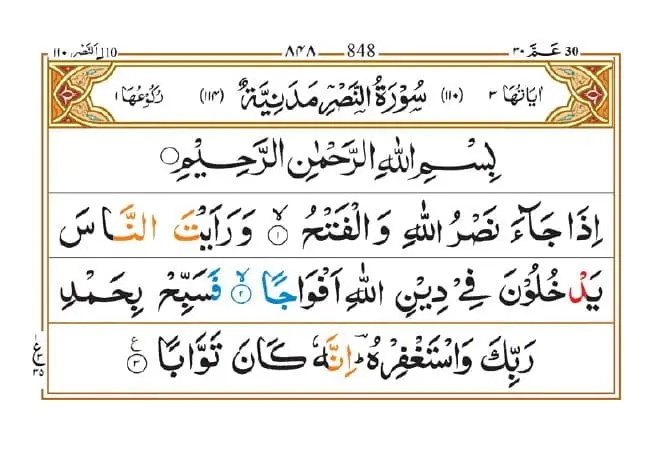 30 عـم ٣٠ 848 ٨٤٨ النصر 110 ١١٠
اٰيَاتُهَا ٣ (١١٠) سُوْرَةُ النَّصْرِ مَدَنِيَّةٌ (١١٤) رُكُوْعُهَا ١
بِسْمِ اللّٰهِ الرَّحْمٰنِ الرَّحِيْمِ
اِذَا جَآءَ نَصْرُ اللّٰهِ وَالْفَتْحُ ۙ ١ وَرَاَيْتَ النَّاسَ
يَدْخُلُوْنَ فِيْ دِيْنِ اللّٰهِ اَفْوَاجًا ۙ ٢ فَسَبِّحْ بِحَمْدِ
رَبِّكَ وَاسْتَغْفِرْهُ ؕ اِنَّهٗ كَانَ تَوَّابًا ع ٣
ع ٣٥